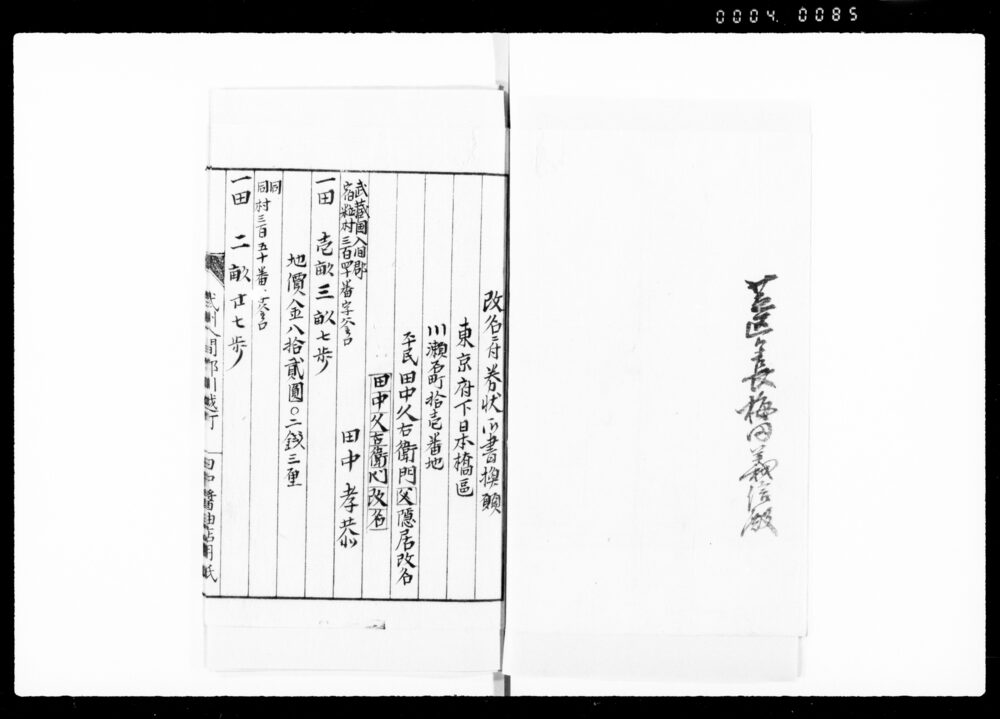 0004 0085
區長梅田義信殿
改名ニ付券状御書換願
東京府下日本橋區
川瀬石町拾壱番地
平民田中久右衛門父隠居改名
田中久右衛門改名
田中孝恭
武蔵国入間郡
宿粒村三百四番字
一田 壱畝三畝七歩
地價金八拾貳圓〇二銭三厘
同
同村三百五十番
一田 二畝廿七歩
武州入間郡川越町
田中醬油店用紙